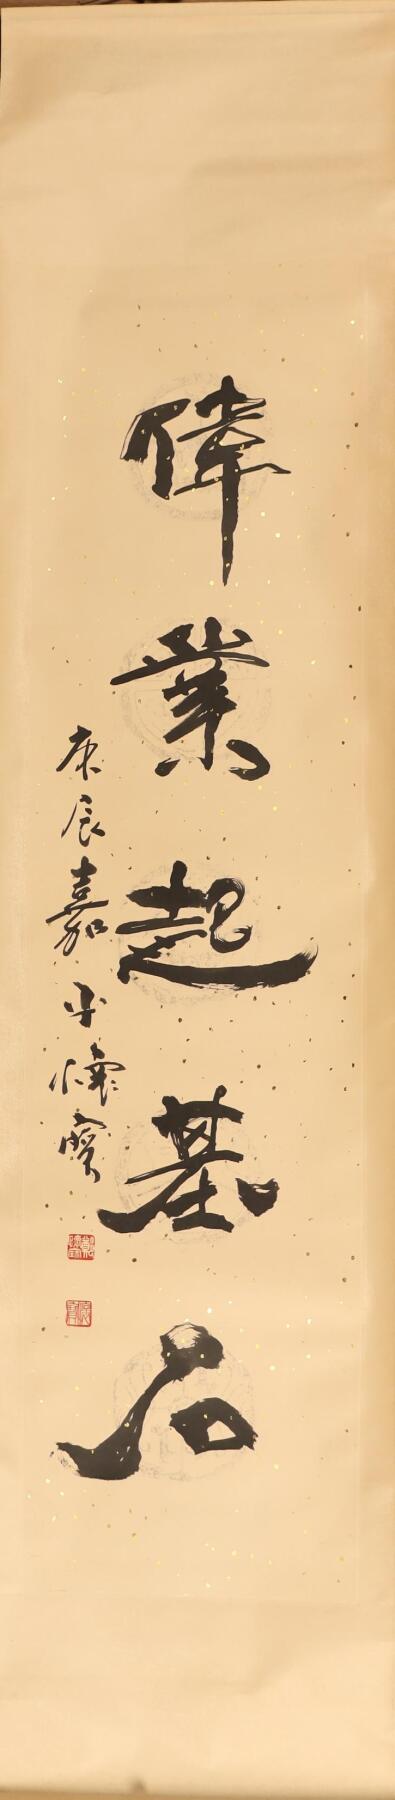 偉業起基石
庚辰嘉平懷寶